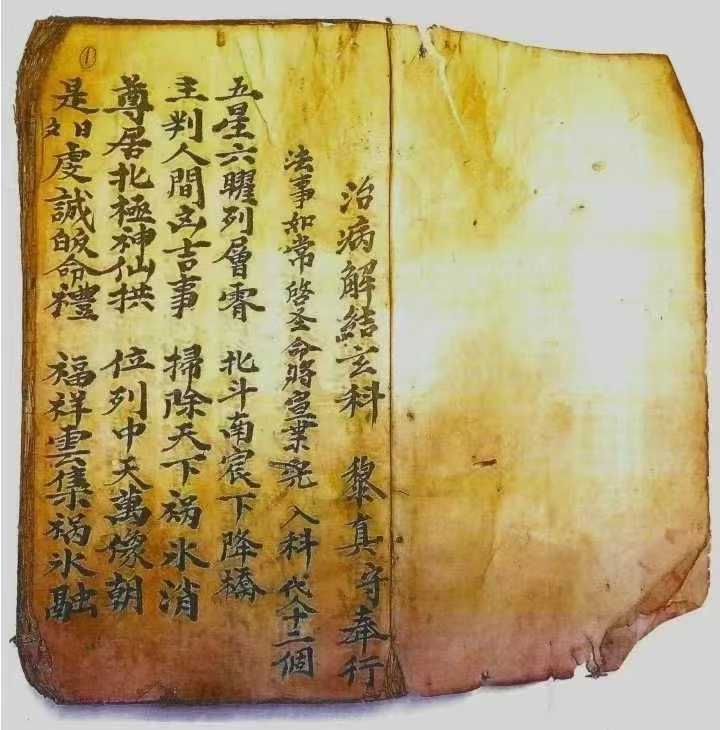 治病解結玄科　黎真守奉行
法事如常啓圣命將宣業完入科代人十二個
五星六曜列層霄　北斗南宸下降橋
主判人間凶吉事　掃除天下禍氷消
尊居北極神仙拱　位列中天萬像朝
是日虔誠皈命禮　福祥雲集禍氷融
①